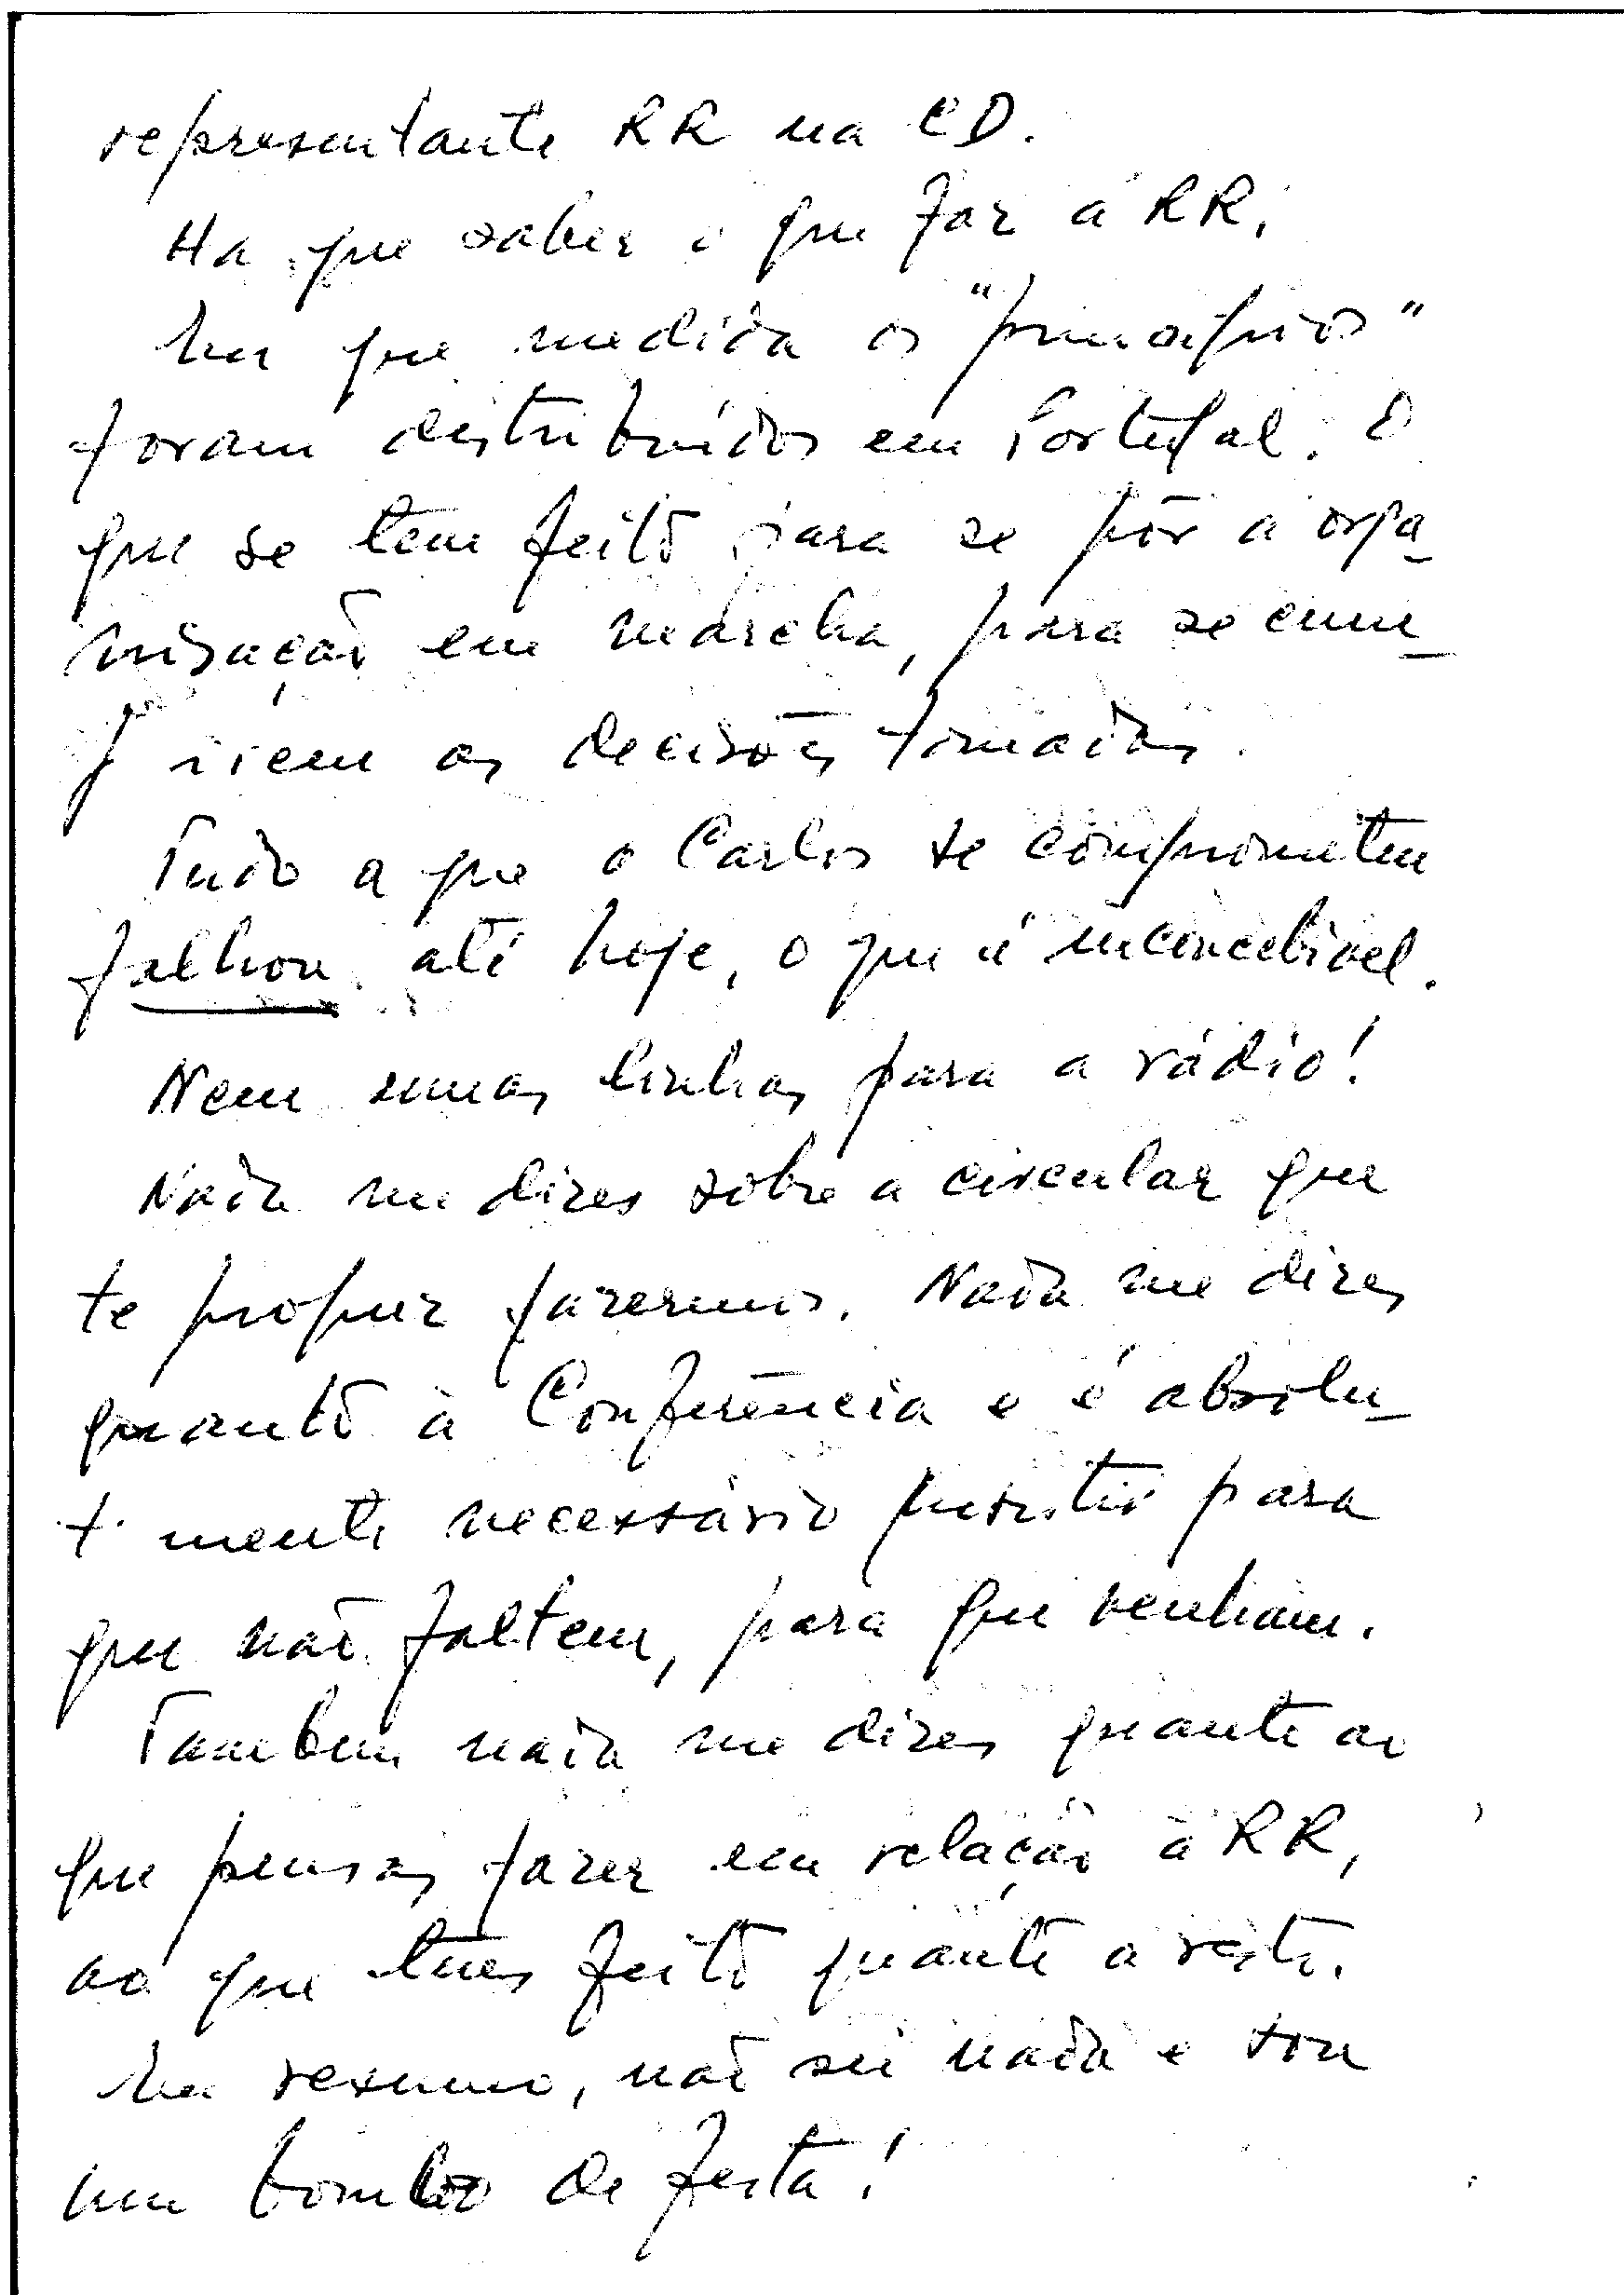 representante RR na CD.
Ha que saber o que faz a RR,
em que medida os "principios"
foram distribuídos em Portugal. O
que se tem feito para se pôr a orga-
nisação em marcha, para se cum-
prirem as decisões tomadas.
Tudo a que o Carlos se comprometeu
falhou até hoje, o que é inconcebivel.
Nem umas linhas para a rádio!
Nada me dizes sobre a circular que
te propuz fazermos. Nada me dizes
quanto à Conferência e é absolu-
tamente necessário insistir para
que não faltem, para que venham.
Tambem nada me dizes quanto ao
que pensas fazer em relação à RR,
ao que tens feito quanto a isto.
Em resumo, não sei nada e sou
um bombo de festa!